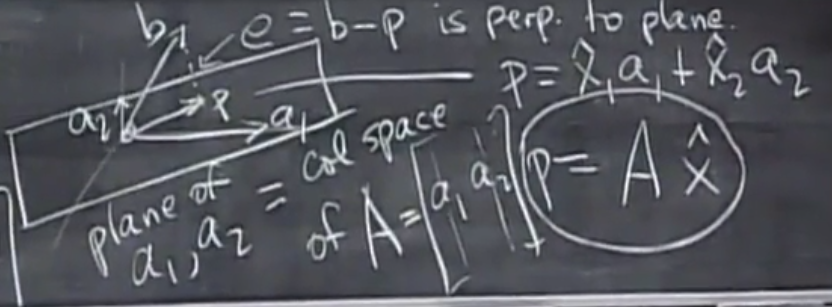 b e = b-p is perp. to plane.
p = x̂₁a₁ + x̂₂a₂
a₂ p a₁
plane of a₁, a₂ = col space of A = [a₁ a₂]
p = A x̂